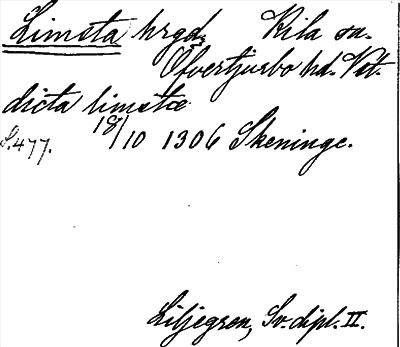 Limsta hrgd, Kila sn.
Öfvertjurbo hd. Vst.
dicta limstæ
18/10 1306 Skeninge.
S. 477.
Liljegren, Sv. dipl. II.